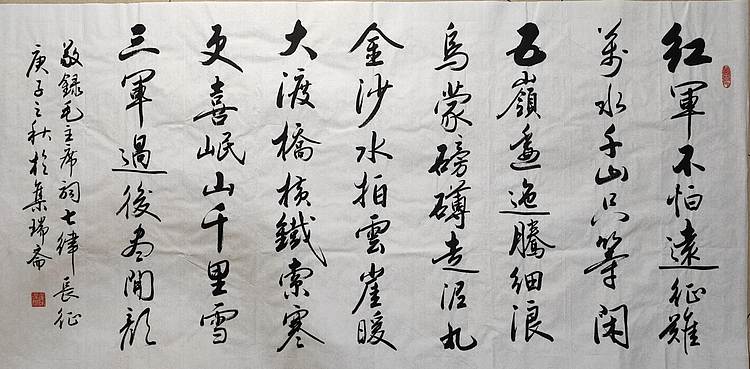 紅軍不怕遠征難
萬水千山只等閑
五嶺逶迤騰細浪
烏蒙磅礴走泥丸
金沙水拍雲崖暖
大渡橋橫鐵索寒
更喜岷山千里雪
三軍過後盡開顏
敬録毛主席詞七律 長征
庚子之秋於集瑞齋